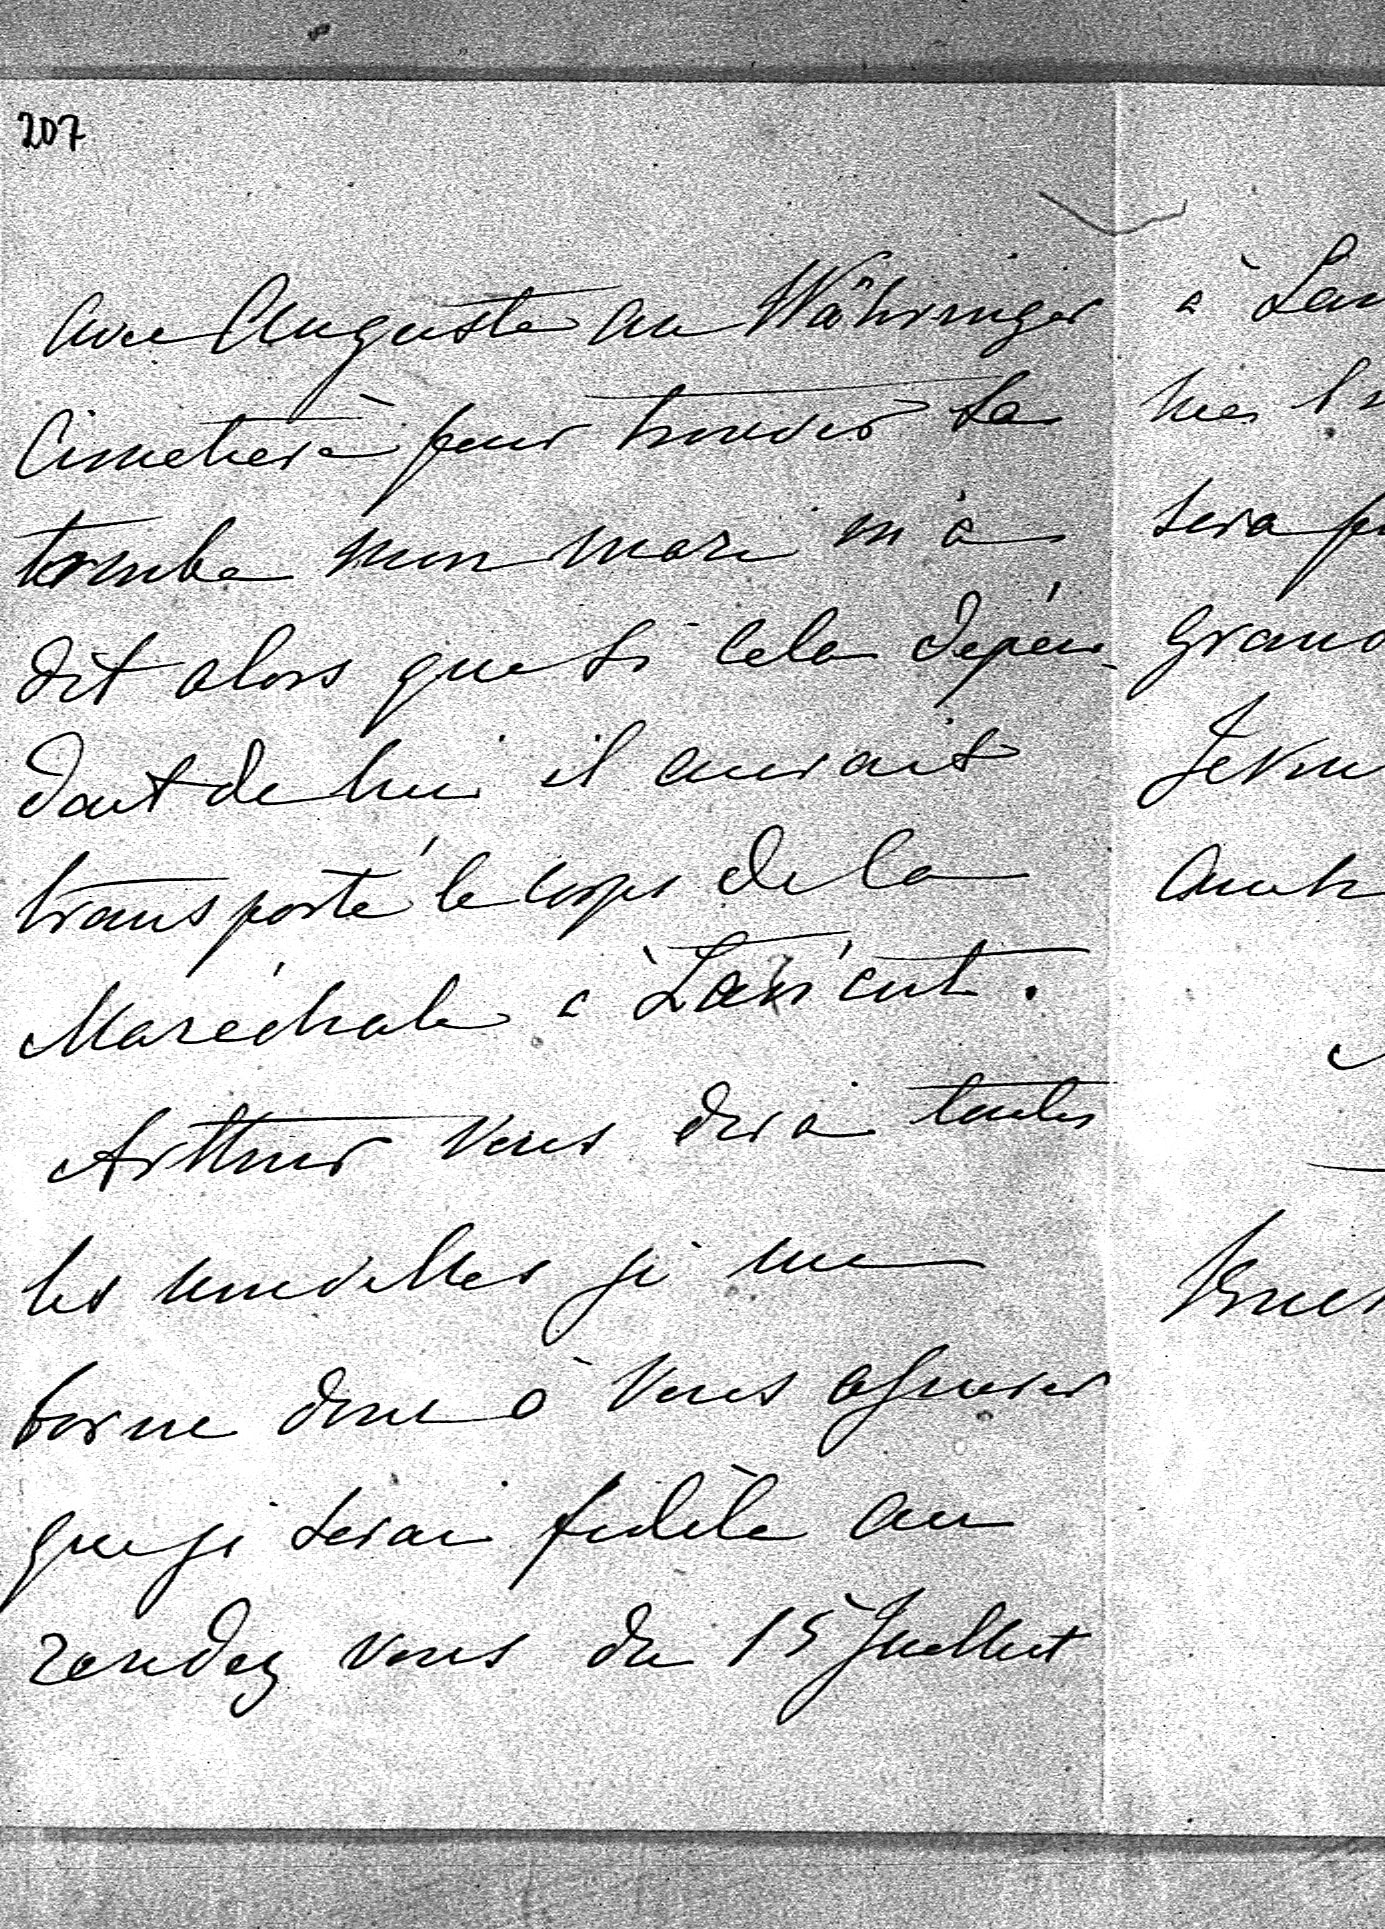 207
avec Auguste au Währinger
Cimetière pour trouver sa
tombe mon mari m'a
dit alors que si cela dépen-
dait de lui il aurait
transporté le corps de la
Maréchale à Łańcut.
Arthur vous dira toutes
les nouvelles je me
borne donc à vous assurer
que je serai fidèle au
rendez vous du 15 Juillet
à
sera
grand